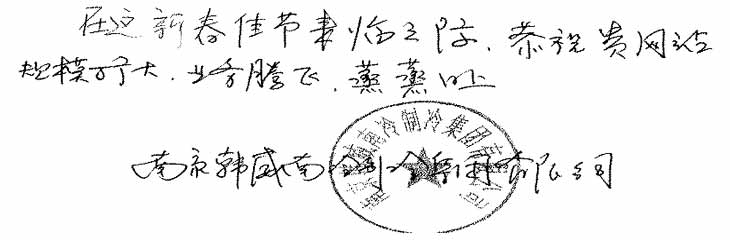 在这新春佳节来临之际，恭祝贵网站
规模扩大，业务腾飞，蒸蒸日上
南京韩威南冷制冷集团有限公司
南京韩威南冷制冷集团有限公司